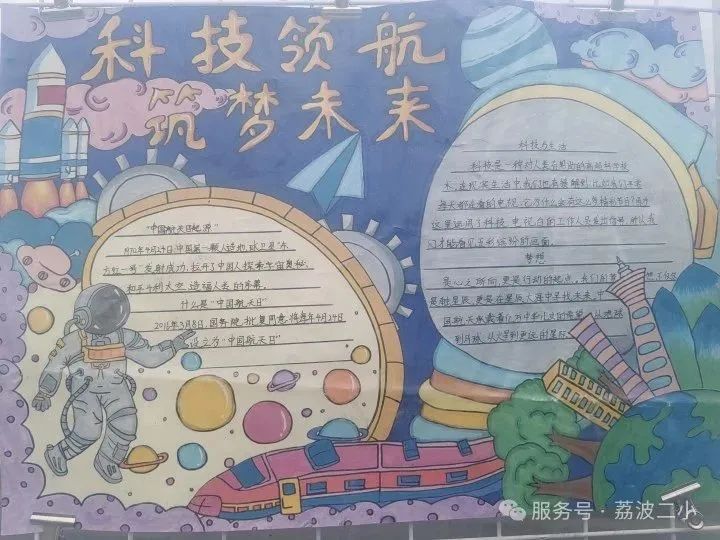 科技领航
筑梦未来
"中国航天日起源"
1970年4月24日,中国第一颗人造地球卫星"东
方红一号"发射成功,拉开了中国人探索宇宙奥秘、
和平利用太空、造福人类的序幕。
什么是"中国航天日"
2016年3月8日,国务院批复同意,将每年4月24日
设立为"中国航天日"
科技与生活
科技是一种对人类有帮助的高超科学技
术,在现实生活中我们也有接触到,比如我们
每天都在看的电视,它为什么会有这么多精彩节目?因为
这里运用了科技,电视台的工作人员发出信号,所以我
们才能看见五彩缤纷的画面。
梦想
是心之所向,更是行动的起点,
是胜星辰,更要在星辰大海中寻找未来,中
国航天承载着
到月球,从火星到更远的星际
服务号·荔波二小